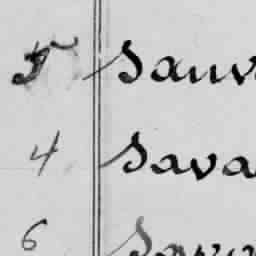 5 Sauv
4 Sava
6 Sava